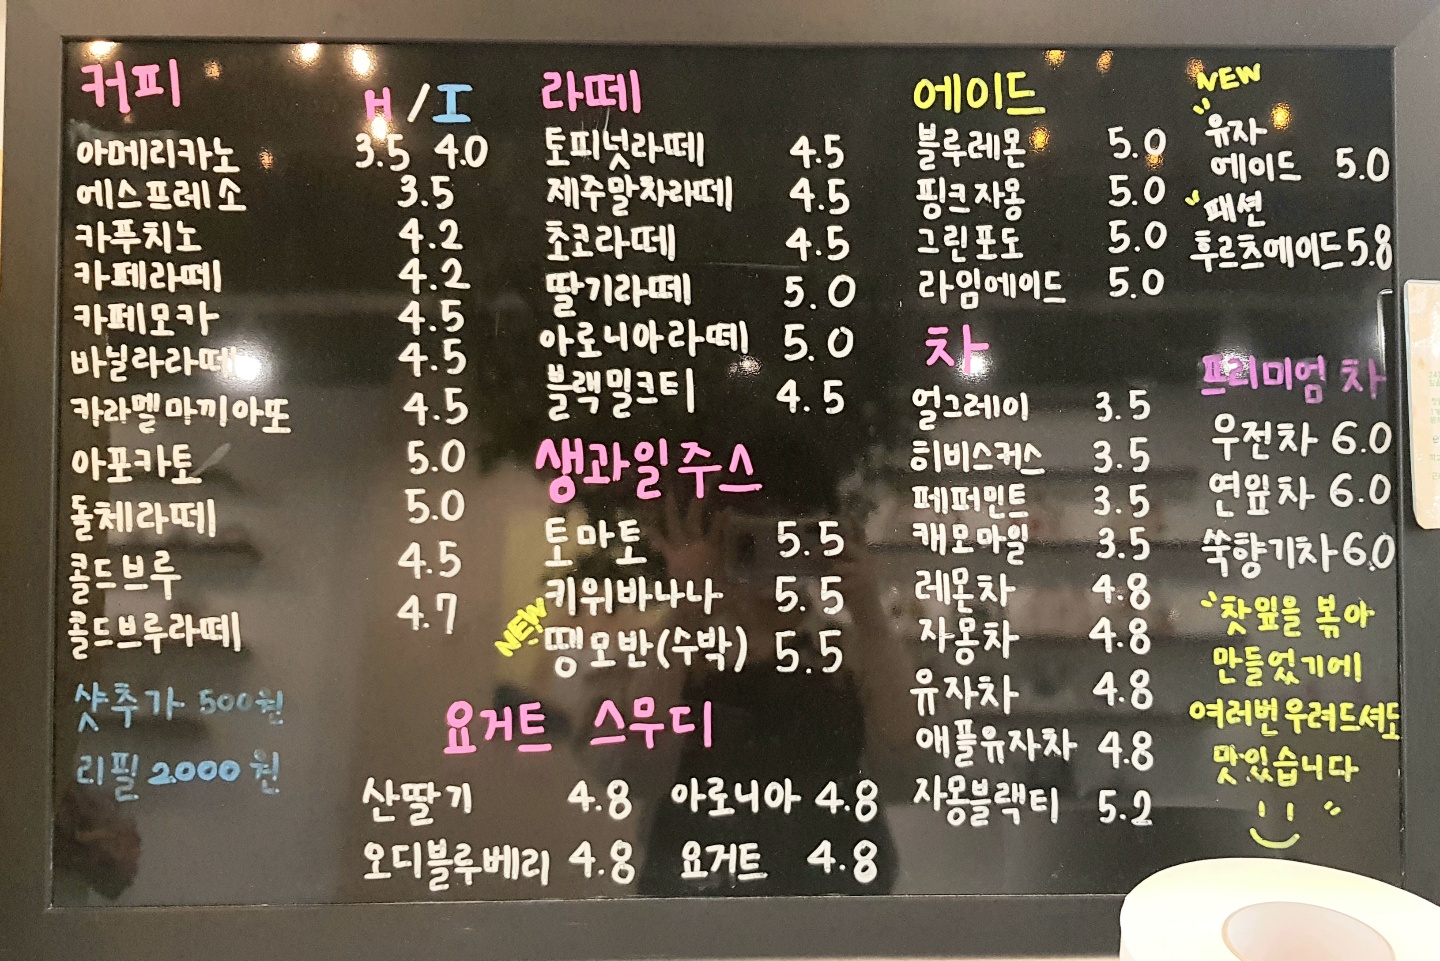 커피
H/I
아메리카노 3.5 4.0
에스프레소 3.5
카푸치노 4.2
카페라떼 4.2
카페모카 4.5
바닐라라떼 4.5
카라멜마끼아또 4.5
아포카토 5.0
돌체라떼 5.0
콜드브루 4.5
콜드브루라떼 4.7
샷추가 500원
리필 2000원
라떼
토피넛라떼 4.5
제주말차라떼 4.5
초코라떼 4.5
딸기라떼 5.0
아로니아라떼 5.0
블랙밀크티 4.5
생과일주스
토마토 5.5
키위바나나 5.5
NEW 땡모반(수박) 5.5
요거트 스무디
산딸기 4.8 아로니아 4.8
오디블루베리 4.8 요거트 4.8
에이드
블루레몬 5.0
핑크자몽 5.0
그린포도 5.0
라임에이드 5.0
NEW
유자
에이드 5.0
패션
후르츠에이드 5.8
차
얼그레이 3.5
히비스커스 3.5
페퍼민트 3.5
캐모마일 3.5
레몬차 4.8
자몽차 4.8
유자차 4.8
애플유자차 4.8
자몽블랙티 5.2
프리미엄 차
우전차 6.0
연잎차 6.0
쑥향기차 6.0
찻잎을 볶아
만들었기에
여러번 우려드셔도
맛있습니다